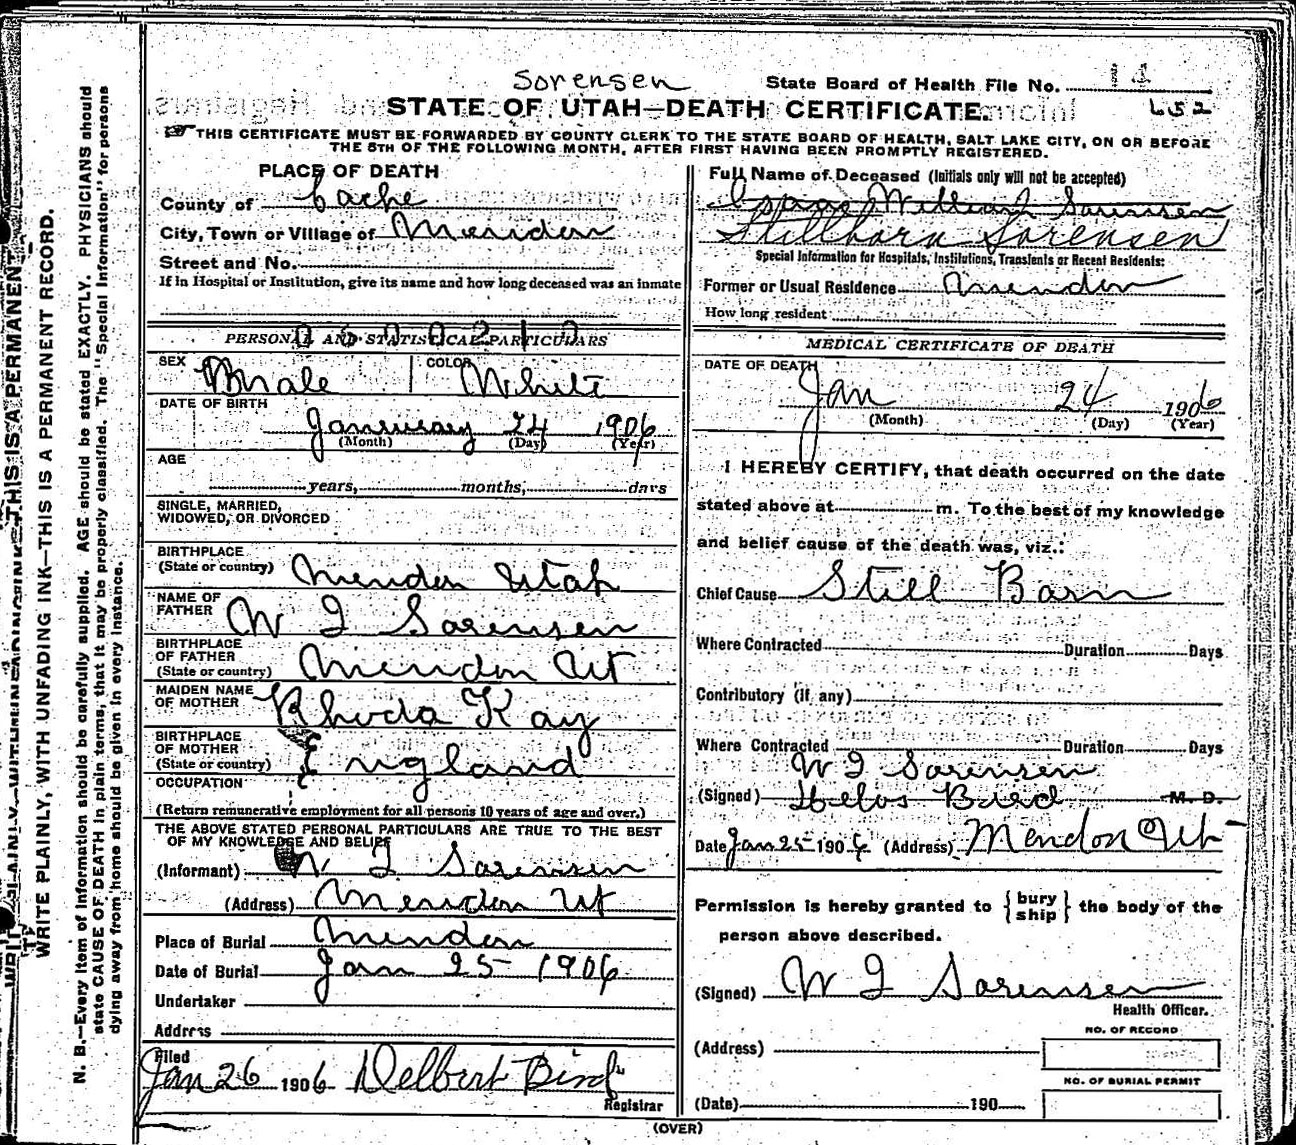 Sorensen
State Board of Health File No. 11
652
STATE OF UTAH—DEATH CERTIFICATE.
THIS CERTIFICATE MUST BE FORWARDED BY COUNTY CLERK TO THE STATE BOARD OF HEALTH, SALT LAKE CITY, ON OR BEFORE
THE 5TH OF THE FOLLOWING MONTH, AFTER FIRST HAVING BEEN PROMPTLY REGISTERED.
PLACE OF DEATH
County of Cache
City, Town or Village of Mendon
Street and No.
If in Hospital or Institution, give its name and how long deceased was an inmate
PERSONAL AND STATISTICAL PARTICULARS
SEX Male COLOR White
DATE OF BIRTH
January 24 1906
(Month) (Day) (Year)
AGE
years, months, days
SINGLE, MARRIED,
WIDOWED, OR DIVORCED
BIRTHPLACE
(State or country) Mendon Utah
NAME OF
FATHER W I Sorensen
BIRTHPLACE
OF FATHER
(State or country) Mendon Ut
MAIDEN NAME
OF MOTHER Rhoda Kay
BIRTHPLACE
OF MOTHER
(State or country) England
OCCUPATION
(Return remunerative employment for all persons 10 years of age and over.)
THE ABOVE STATED PERSONAL PARTICULARS ARE TRUE TO THE BEST
OF MY KNOWLEDGE AND BELIEF
(Informant) W I Sorensen
(Address) Mendon Ut
Place of Burial Mendon
Date of Burial Jan 25 1906
Undertaker
Address
Filed
Jan 26 1906 Delbert Bird
Registrar
Full Name of Deceased (Initials only will not be accepted)
Isaac William Sorensen
Stillborn Sorensen
Special Information for Hospitals, Institutions, Transients or Recent Residents:
Former or Usual Residence Mendon
How long resident
MEDICAL CERTIFICATE OF DEATH
DATE OF DEATH
Jan 24 1906
(Month) (Day) (Year)
I HEREBY CERTIFY, that death occurred on the date
stated above at m. To the best of my knowledge
and belief cause of the death was, viz.:
Chief Cause Still Born
Where Contracted Duration Days
Contributory (if any)
Where Contracted Duration Days
W I Sorensen
(Signed) Bird M. D.
Date Jan 25 1906 (Address) Mendon Ut
Permission is hereby granted to {bury ship} the body of the
person above described.
(Signed) W I Sorensen
Health Officer.
NO. OF RECORD
(Address)
NO. OF BURIAL PERMIT
(Date) 190
(OVER)
WRITE PLAINLY, WITH UNFADING INK—THIS IS A PERMANENT RECORD.
N. B.—Every item of information should be carefully supplied. AGE should be stated EXACTLY. PHYSICIANS should
state CAUSE OF DEATH in plain terms, that it may be properly classified. The "Special Information" for persons
dying away from home should be given in every instance.